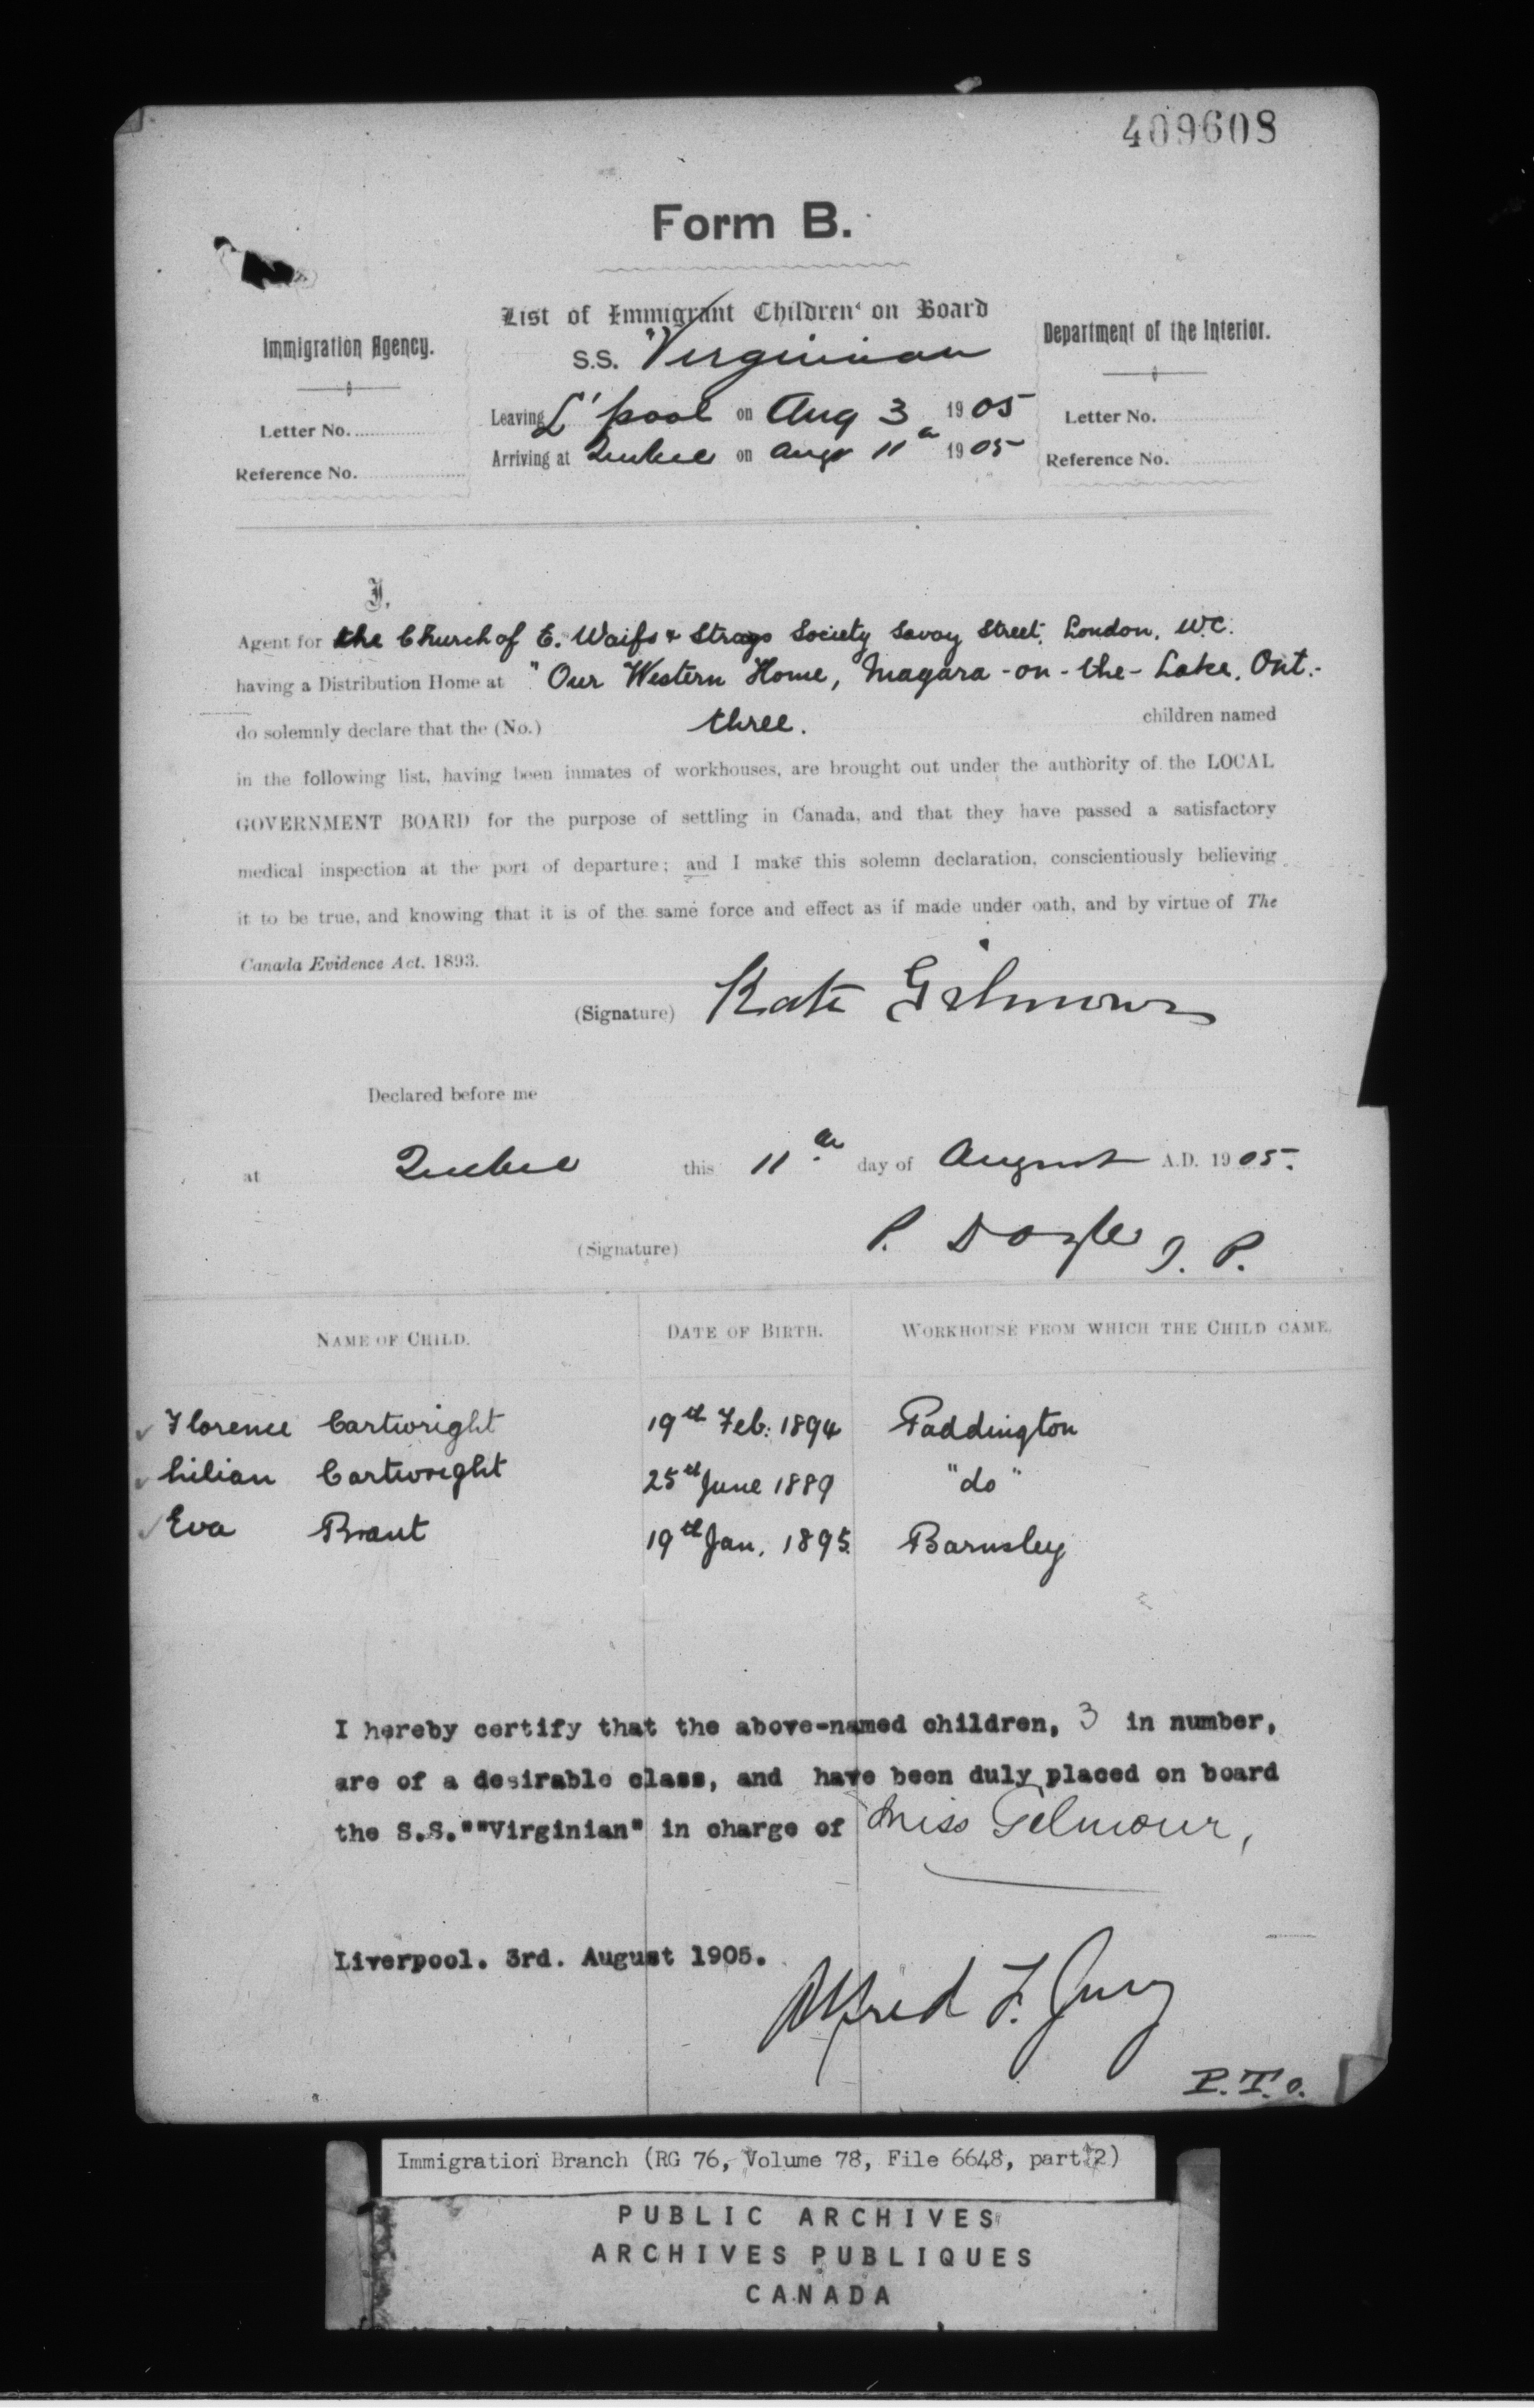 409608
Form B.
List of Immigrant Children on Board
Immigration Agency.
S.S. "Virginian
Department of the Interior.
Leaving L'pool on Aug 3 1905
Letter No.
Letter No.
Arriving at Quebec on Aug 11th 1905
Reference No.
Reference No.
I,
Agent for the Church of E. Waifs & Strays Society Savoy Street, London, W.C.
having a Distribution Home at "Our Western Home, Niagara-on-the-Lake, Ont.-
do solemnly declare that the (No.) three. children named
in the following list, having been inmates of workhouses, are brought out under the authority of the LOCAL
GOVERNMENT BOARD for the purpose of settling in Canada, and that they have passed a satisfactory
medical inspection at the port of departure; and I make this solemn declaration, conscientiously believing
it to be true, and knowing that it is of the same force and effect as if made under oath, and by virtue of The
Canada Evidence Act, 1893.
(Signature) Kate Gilmour
Declared before me
at Quebec this 11th day of August A.D. 1905.
(Signature) P. Doyle J. P.
NAME OF CHILD. DATE OF BIRTH. WORKHOUSE FROM WHICH THE CHILD CAME.
Florence Cartwright 19th Feb: 1894 Paddington
Lilian Cartwright 25th June 1889 "do"
Eva Brant 19th Jan. 1895. Barnsley
I hereby certify that the above-named children, 3 in number,
are of a desirable class, and have been duly placed on board
the S.S.""Virginian" in charge of Miss Gilmour,
Liverpool. 3rd. August 1905.
Alfred F. Jury
P.T.O.
Immigration Branch (RG 76, Volume 78, File 6648, part 2)
PUBLIC ARCHIVES
ARCHIVES PUBLIQUES
CANADA